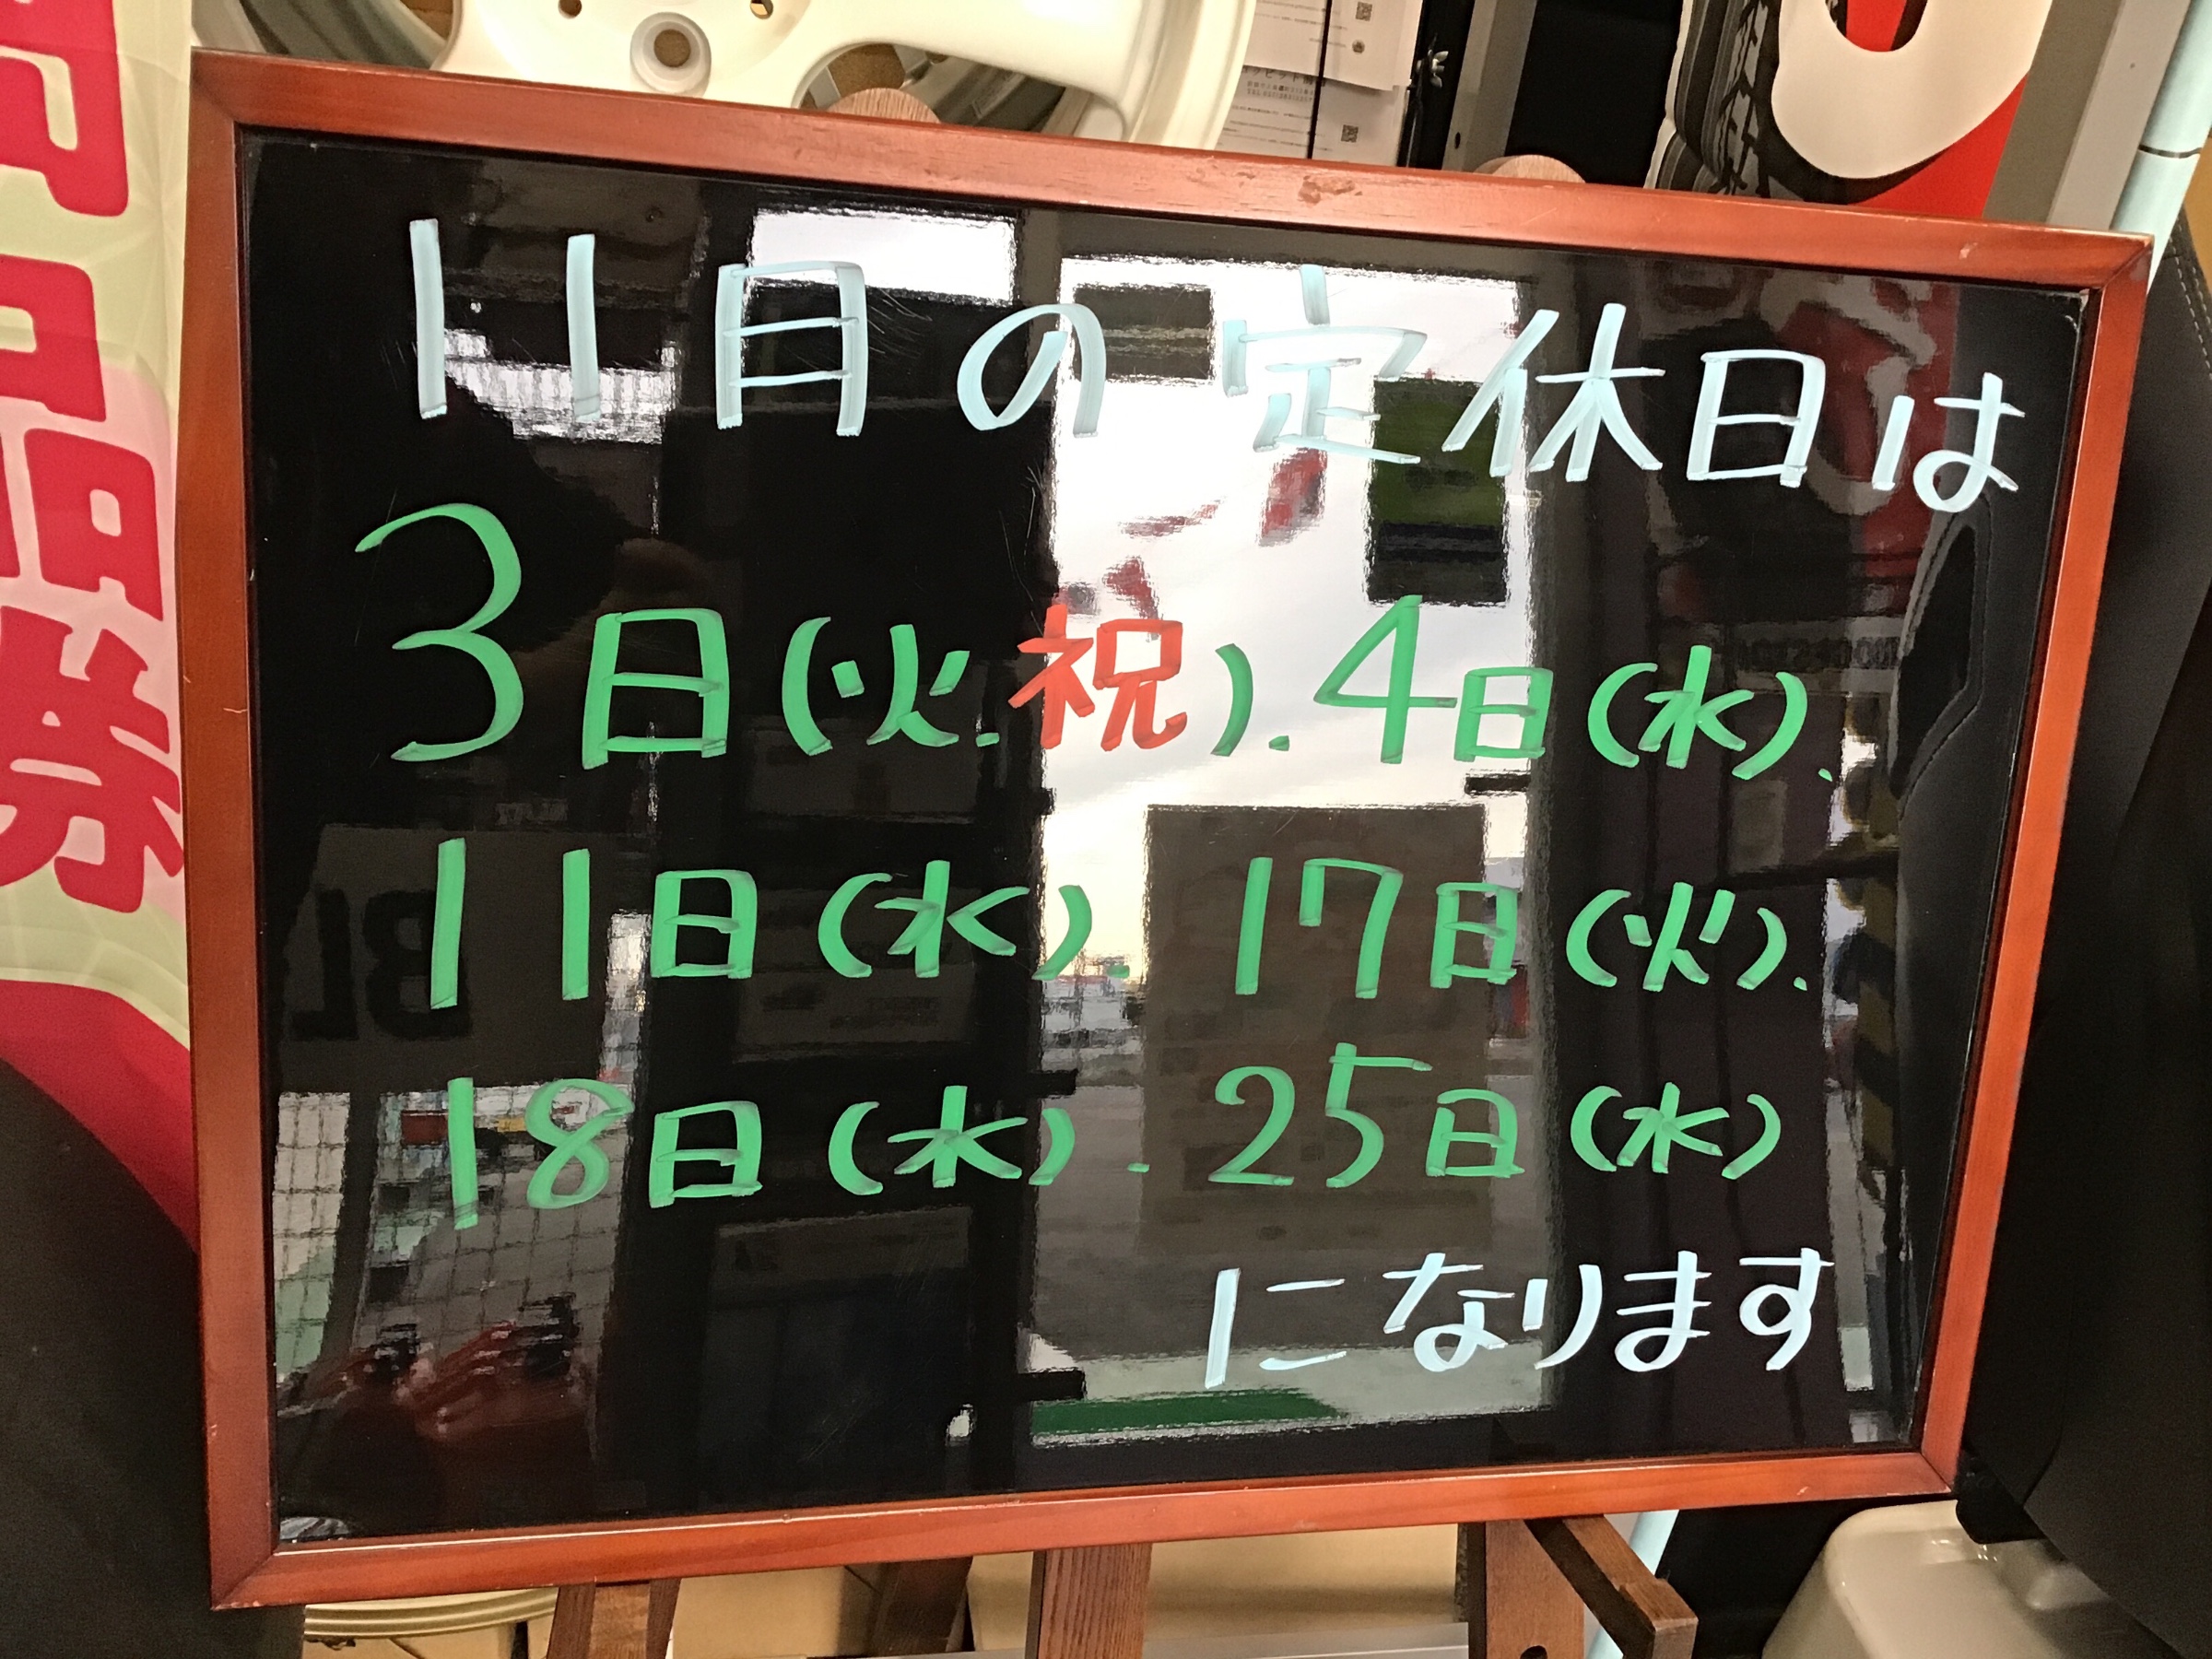 11月の定休日は
3日(火.祝).4日(水).
11日(水).17日(火).
18日(水).25日(水)
になります